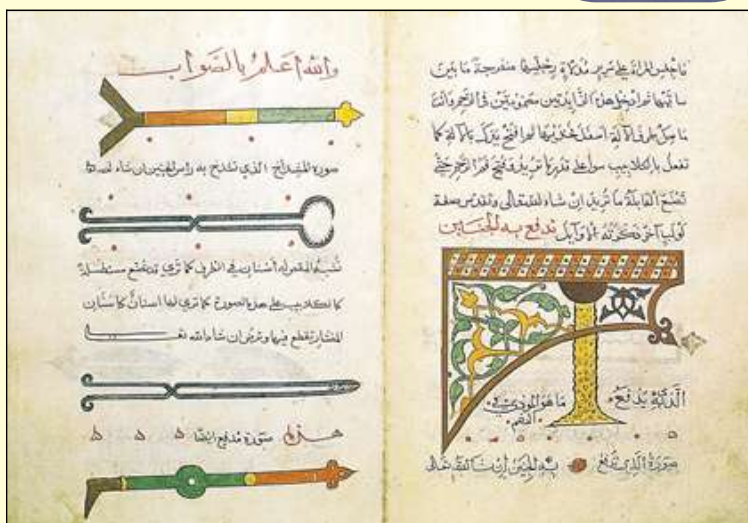 فاجلس المرأة على سرير مدلاة رجليها منفرجة ما بين
ساقيها ثم ادخل هذه الزايدتين مضمومتين في الرحم وانت
ماسك طرف الآلة اسفل فخذيها ثم افتح يدك بالآلة كما
تفعل بالكلاليب سوا على قدر ما تريد وفتح فم الرحم حتى
تصنع القابلة ما تريد ان شاء الله تعالى وتقدس صفة
لولب آخر ذكرته الاوايل تدفع به الجنين
الذي يدفع ما هو
الفم
صورة الذي تدفع به الجنين ان شاء الله تعالى
والله اعلم بالصواب
صورة المشداخ الذي تشدخ به راس الجنين ان شاء الله
تشبه المقص له اسنان في الطرف كما ترى قد تصنع مستطيلة
كالكلاليب على هذه الصورة كما ترى لها اسنان كاسنان
المنشار يقطع فيها وترض ان شاء الله تعالى
هذه صورة مدفع ايضا